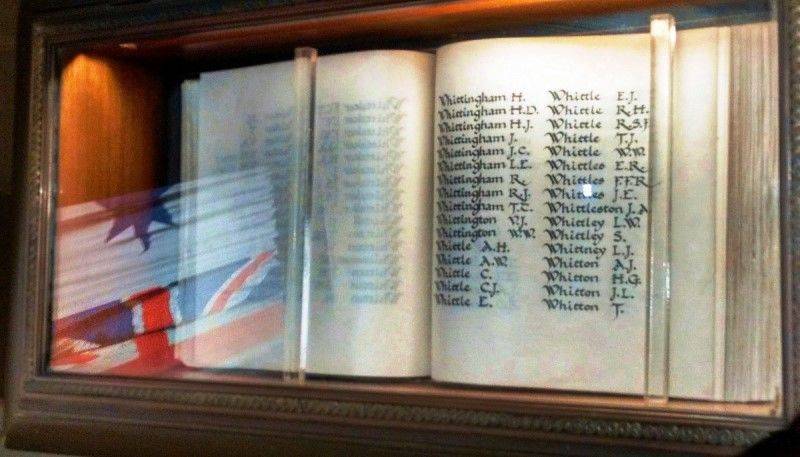 Whittingham H.
Whittingham H.D.
Whittingham H.J.
Whittingham J.
Whittingham J.C.
Whittingham L.E.
Whittingham R.
Whittingham R.J.
Whittingham T.C.
Whittington V.J.
Whittington W.W.
Whittle A.H.
Whittle A.W.
Whittle C.
Whittle C.J.
Whittle E.
Whittle E.J.
Whittle R.H.
Whittle R.S.F.
Whittle T.J.
Whittle W.W.
Whittles E.R.
Whittles F.F.R.
Whittles J.E.
Whittleston J.A
Whittley L.W.
Whittley S.
Whittney L.J.
Whitton A.J.
Whitton H.G.
Whitton J.L.
Whitton T.